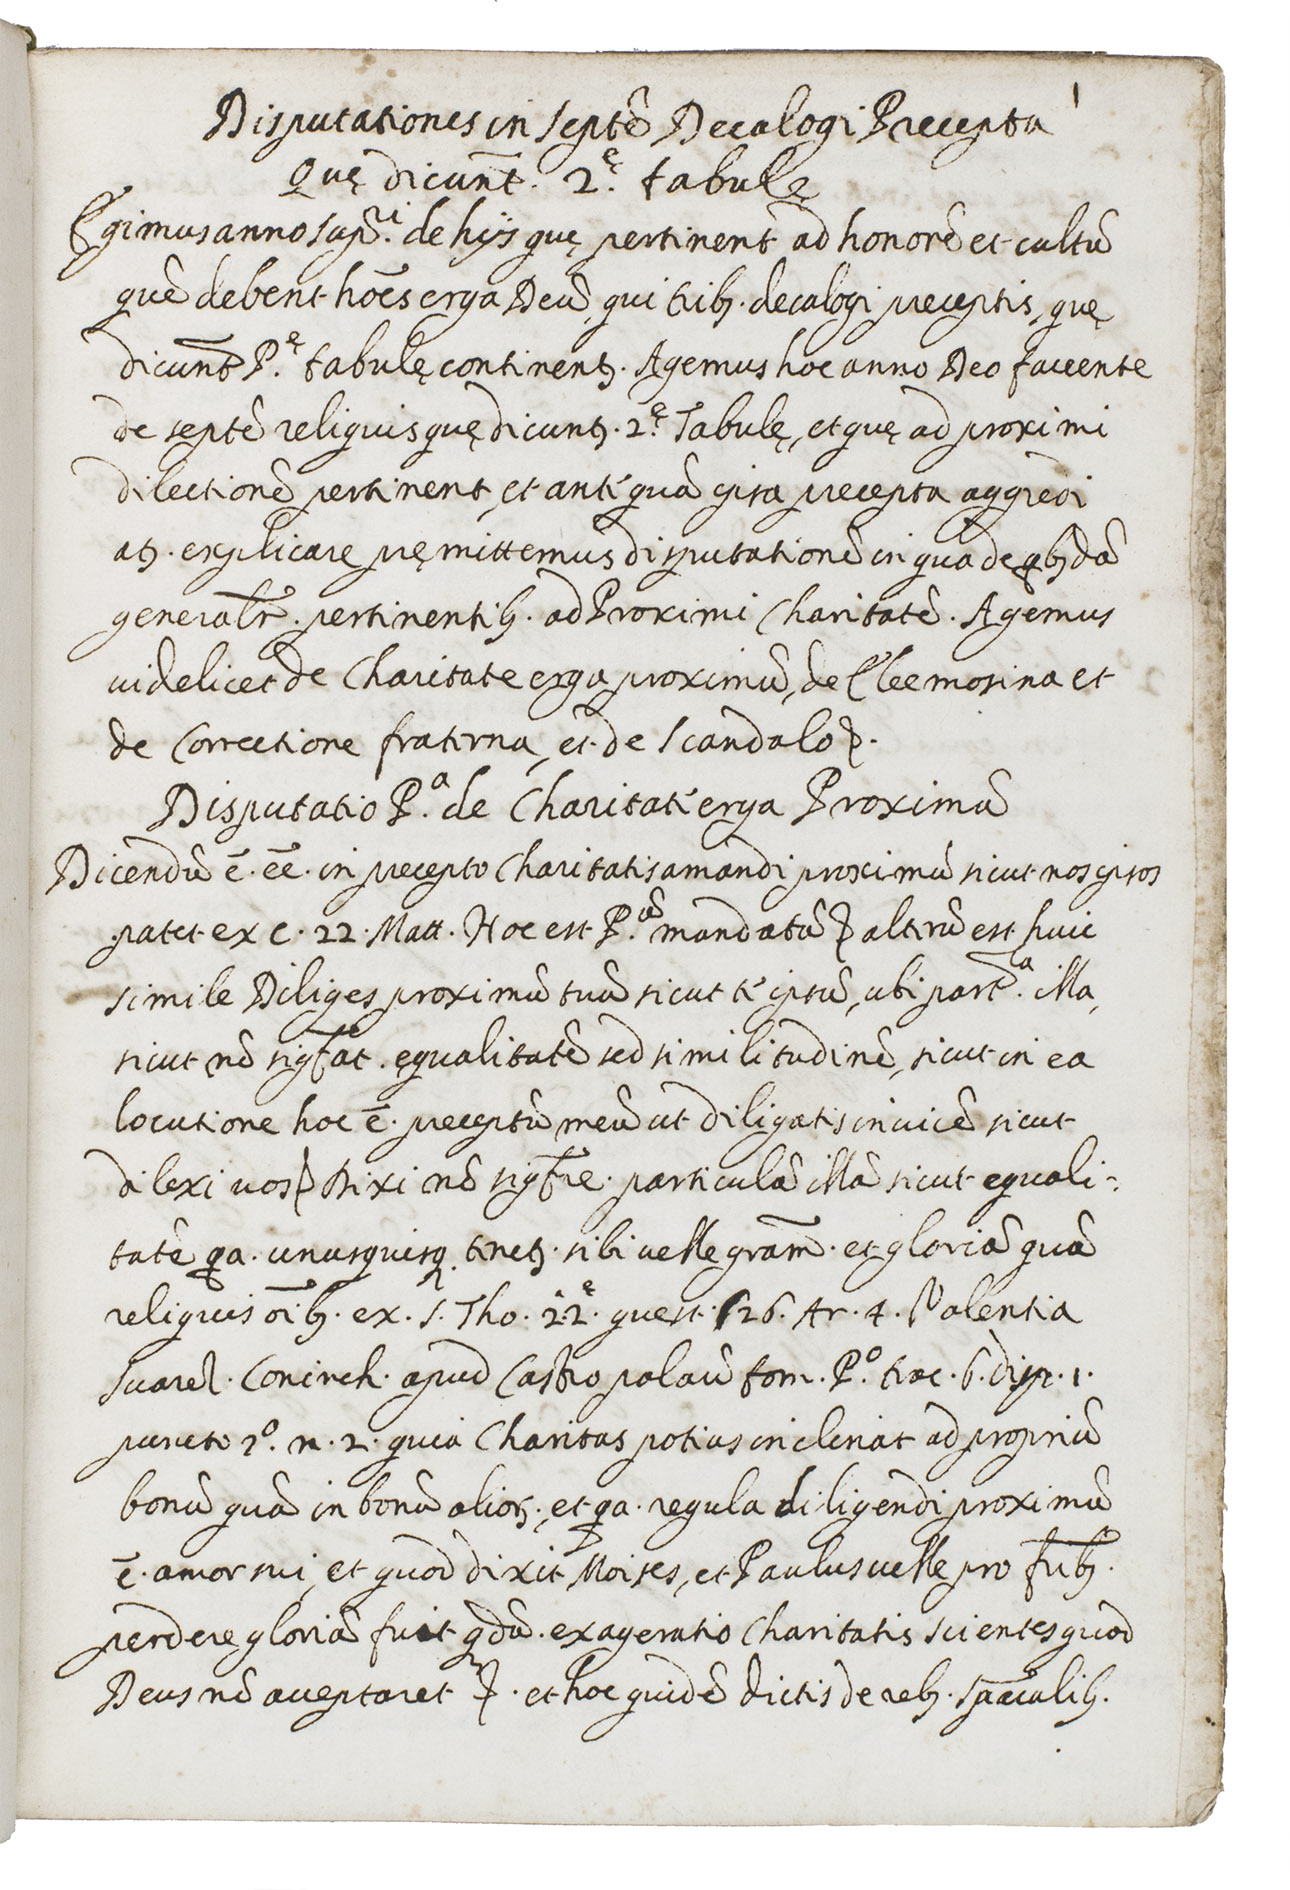 1
Disputationes in septẽ Decalogi Precepta
Quę dicunt̃. 2.ę tabulę
Egimus anno sup.ri de hijs quę pertinent ad honorẽ et cultũ
quẽ debent hoẽs erga Deũ, qui tribꝫ. decalogi preceptis, quę
dicunt̃ P.ę tabulę continentꝫ. Agemus hoc anno Deo favente
de septẽ reliquis quę dicuntꝫ. 2.ę Tabulę, et quę ad proximi
dilectionẽ pertinent, et ante quã ipsa precepta aggredi
atꝫ. explicare pręmittemus disputationẽ in qua de qbꝫdã
generalr̃. pertinentibꝫ. ad Proximi Charitatẽ. Agemus
videlicet de Charitate erga proximũ, de Eleemosina et
de Correctione fraterna, et de Scandalo
Disputatio P.a de Charitate erga Proximũ
Dicendũ ẽ. eẽ. in precepto Charitatis amandi proximũ sicut nos ipsos
patet ex c. 22. Matt. Hoc est P.ũ mandatũ alterũ est huic
simile Diliges proximũ tuũ sicut te ipsũ, ubi part.a illa,
sicut nõ sigfat̃. equalitatẽ sed similitudinẽ, sicut in ea
locutione hoc ẽ. preceptũ meũ ut diligatis invicẽ sicut
dilexi vos Dixi nõ sigfr̃e. particulã illã sicut equali-
tatẽ qa. unusquisq tnetꝫ. sibi velle gram̃. et gloriã quã
reliquis oĩbꝫ. ex. S. Tho. 2.2.ę quest. 26. Ar. 4. Valentia
Suarez. Coninch. apud Castro palaũ tom. P.o trac. 6. disp. 1.
puncto 2.o n. 2. quia Charitas potius inclinat ad propriũ
bonũ quã in bonũ alioꝝ., et qa. regula diligendi proximũ
ẽ. amor sui, et quod dixit Moises, et Paulus velle pro frĩbꝫ.
perdere gloriã fuit qdã. exageratio Charitatis scientes quod
Deus nõ acceptaret. et hoc quidẽ dictis de rebꝫ. spũalibꝫ.